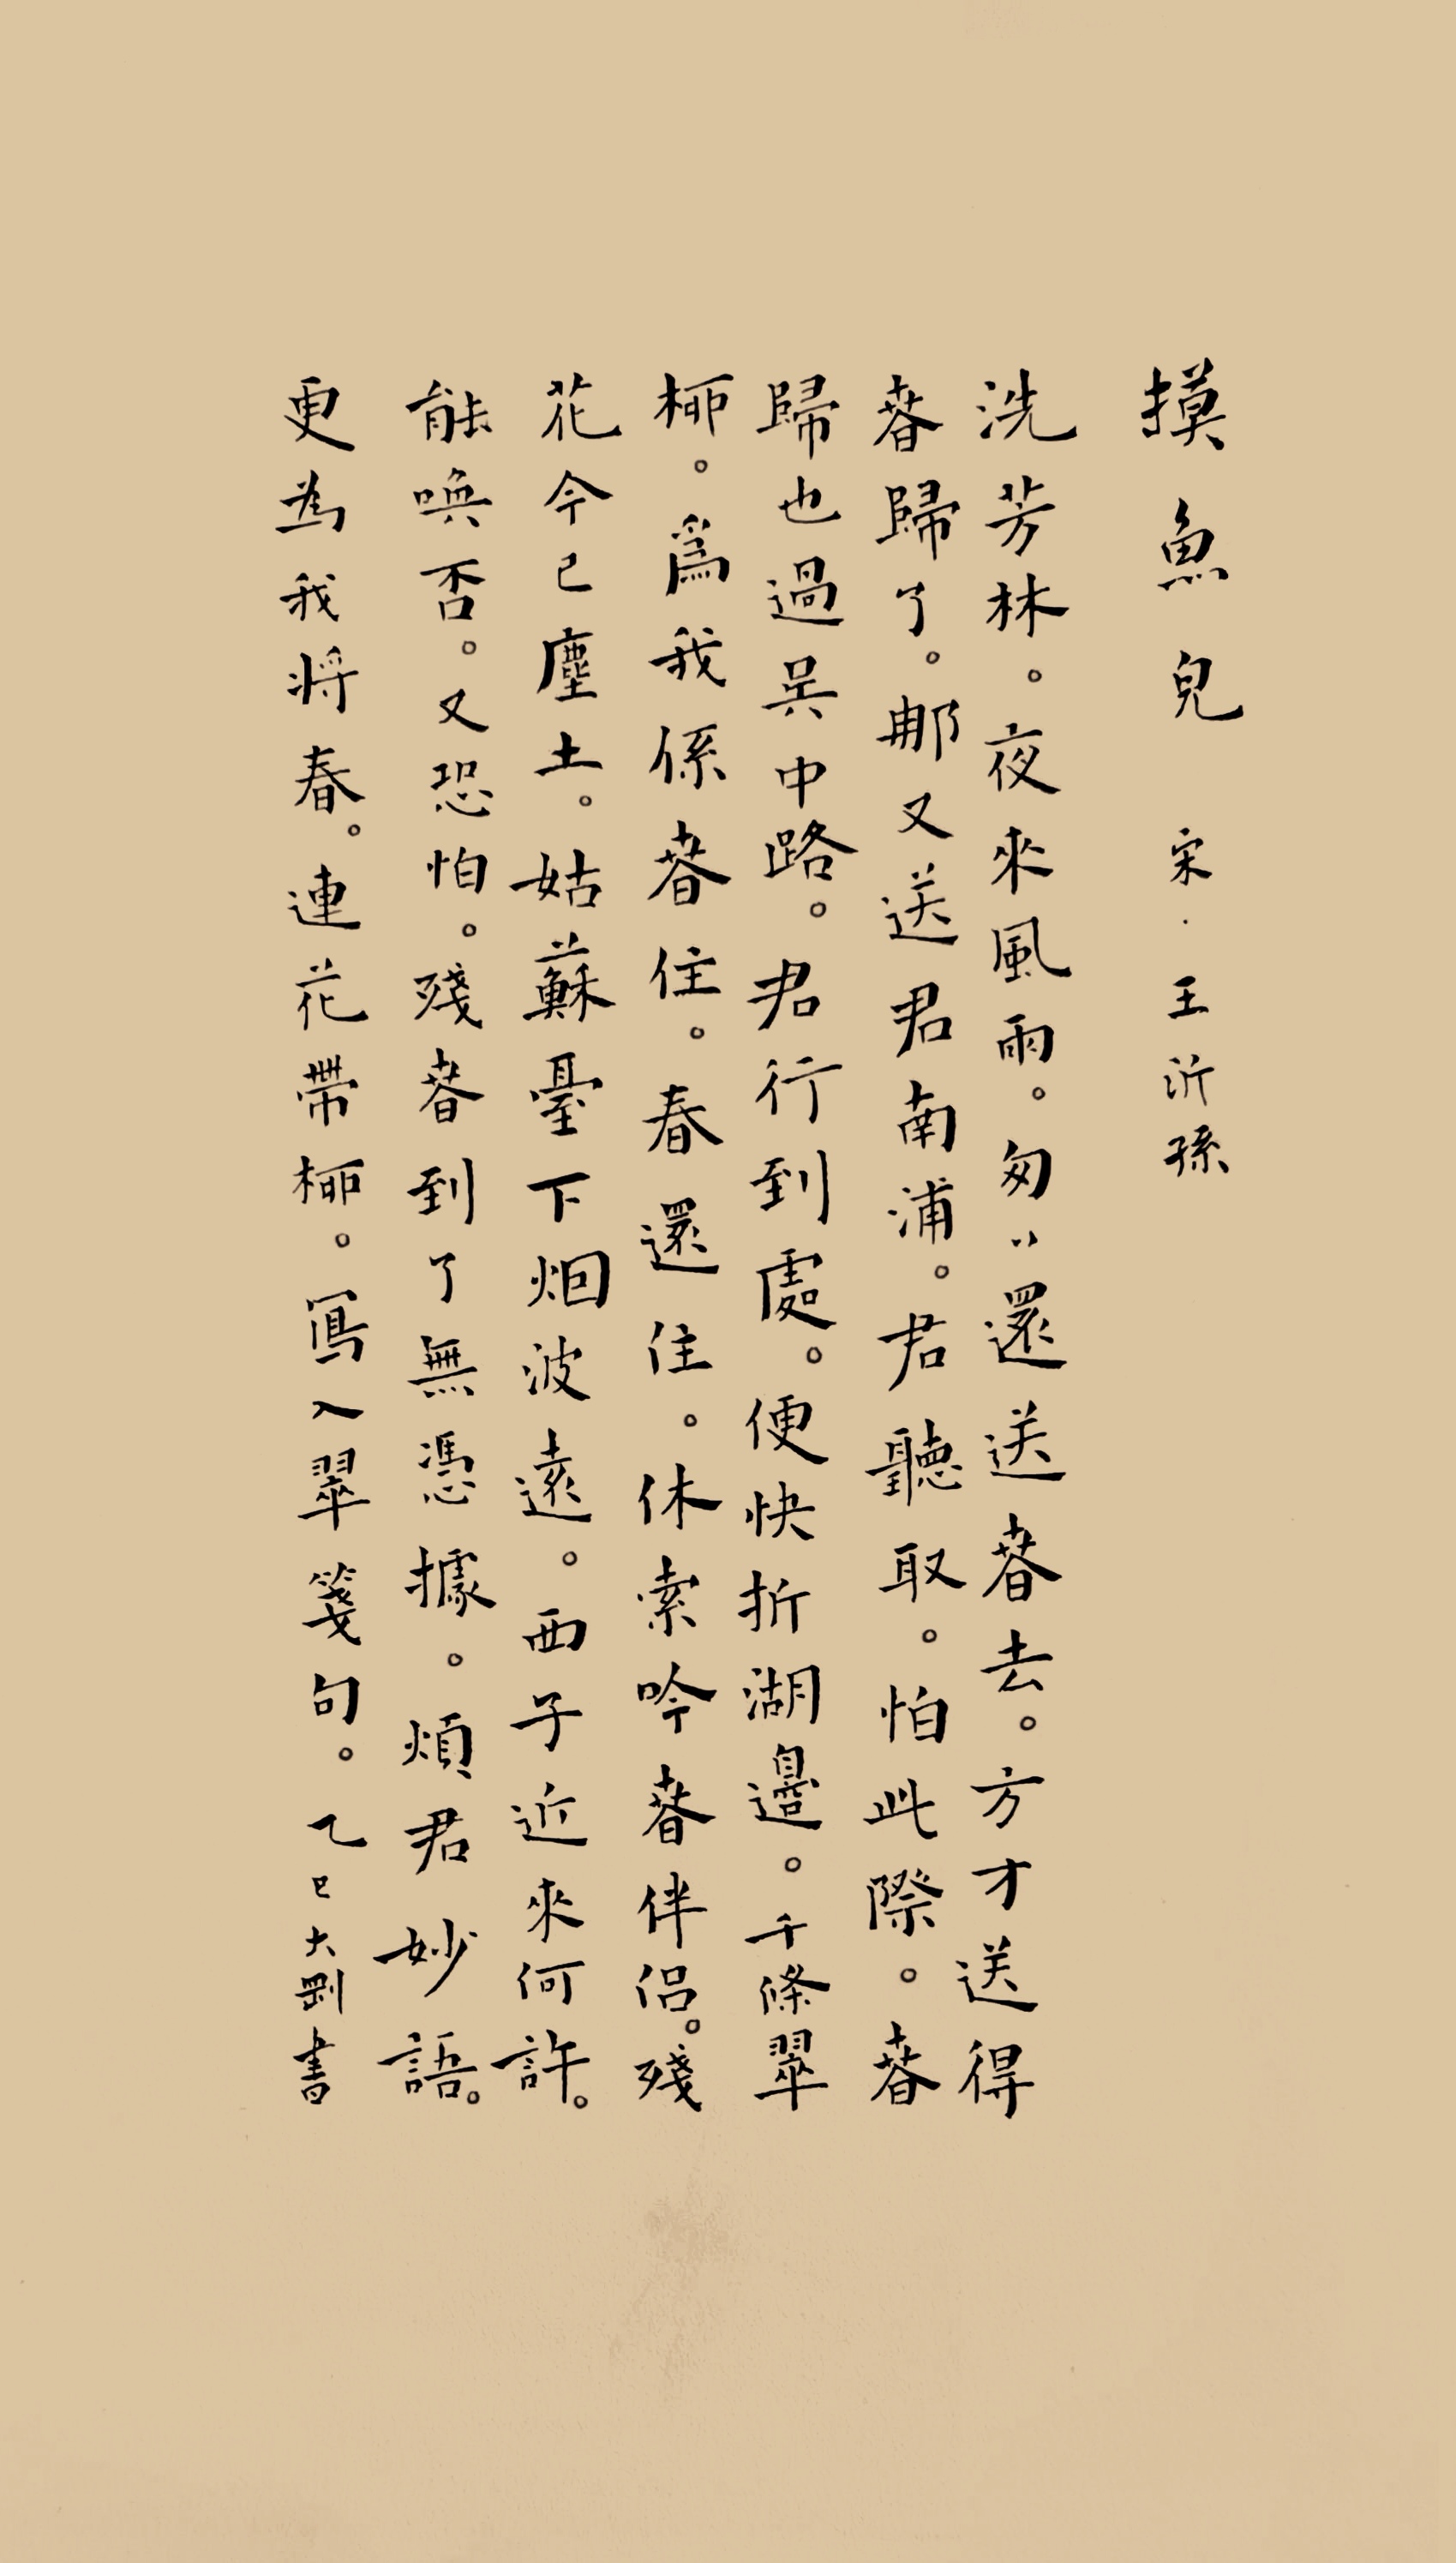 摸魚兒 宋·王沂孫
洗芳林。夜來風雨。匆〻還送春去。方才送得
春歸了。那又送君南浦。君聽取。怕此際。春
歸也過吳中路。君行到處。便快折湖邊。千條翠
柳。爲我係春住。春還住。休索吟春伴侣。殘
花今已塵土。姑蘇臺下烟波遠。西子近來何許。
能喚否。又恐怕。殘春到了無憑據。煩君妙語。
更為我將春。連花帶柳。寫入翠箋句。乙巳大剛書